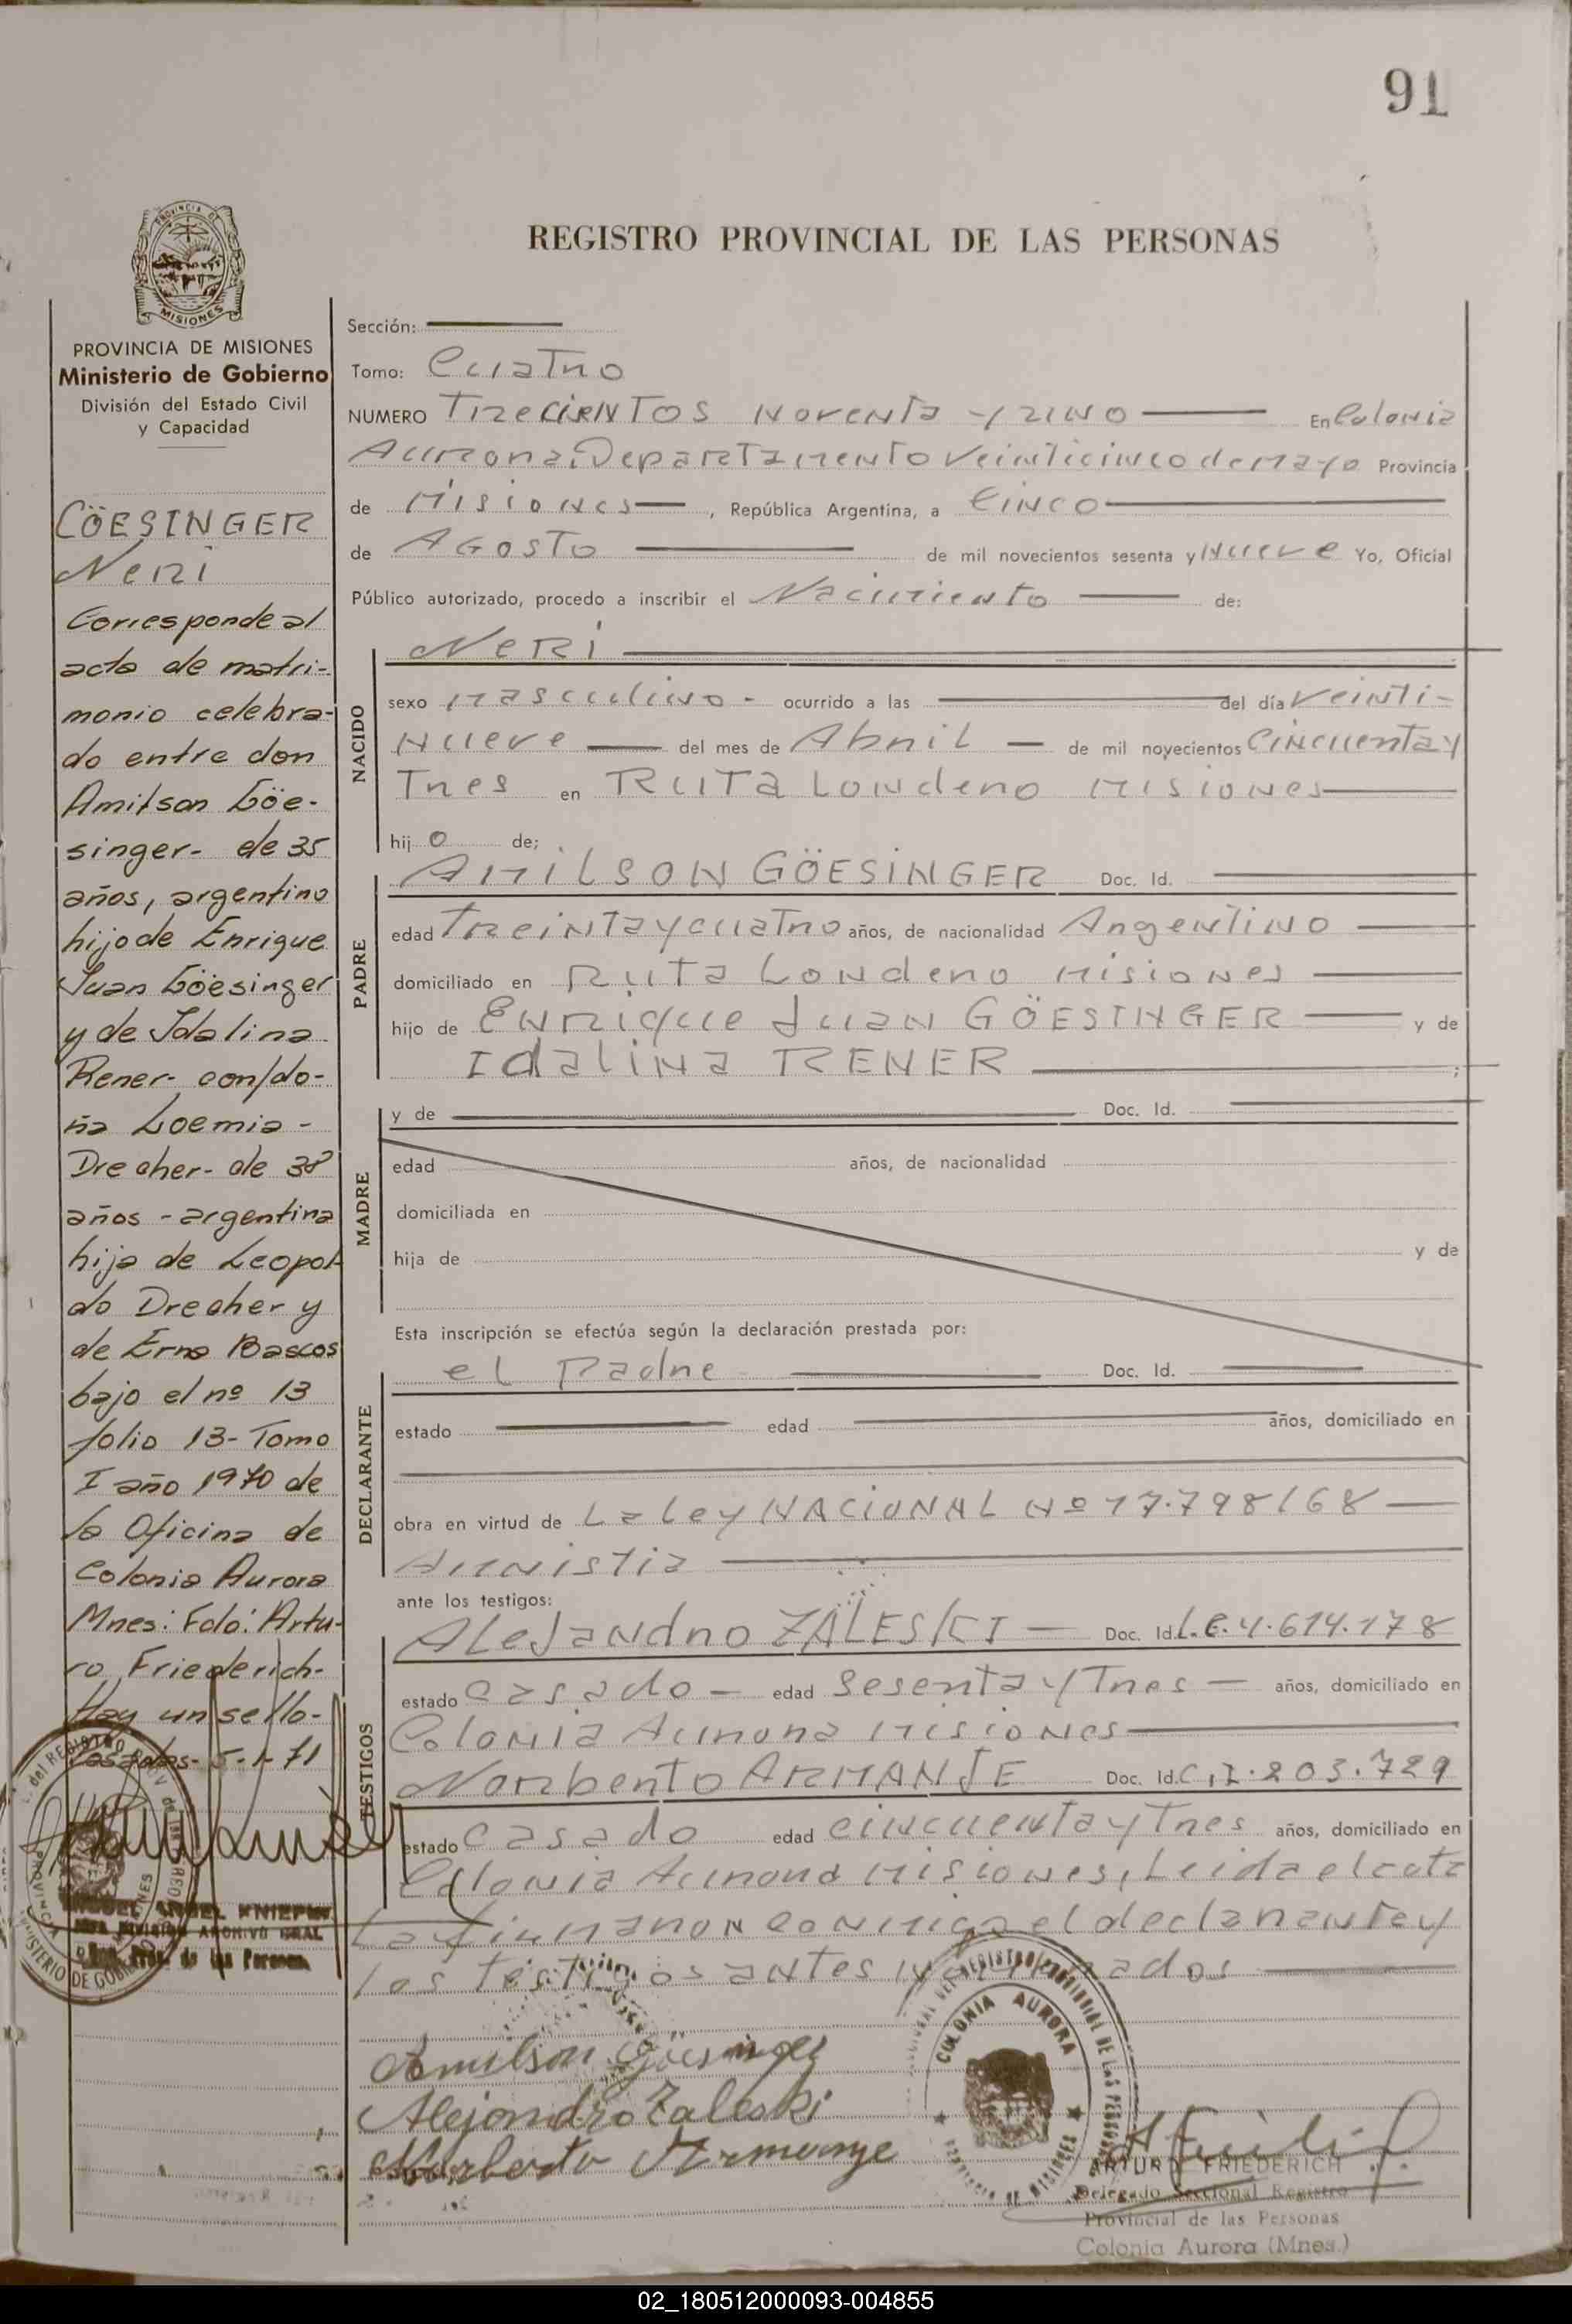 91
PROVINCIA DE
MISIONES
REGISTRO PROVINCIAL DE LAS PERSONAS
PROVINCIA DE MISIONES
Ministerio de Gobierno
División del Estado Civil
y Capacidad
GÖESINGER
Neri
Corresponde al
acto de matri-
monio celebra-
do entre don
Amilson Göe-
singer- de 35
años, argentino
hijo de Enrique
Juan Göesinger
y de Idalina
Rener- con/do-
ña Loemia -
Drecher- de 38
años - argentina
hija de Leopol
do Drecher y
de Erna Bascos
bajo el nº 13
folio 13- Tomo
I año 1970 de
la Oficina de
Colonia Aurora
Mnes: Fdo: Artu-
ro Friederich-
Hay un sello-
Posadas- 5-1-71
Sección:
Tomo: Cuatro
NUMERO Trecientos Noventa y uno En Colonia
Aurora, Departamento Veinticinco de Mayo Provincia
de Misiones , República Argentina, a Cinco
de Agosto de mil novecientos sesenta y Nueve Yo, Oficial
Público autorizado, procedo a inscribir el Nacimiento de:
NACIDO
Neri
sexo masculino - ocurrido a las del día Veinti-
Nueve del mes de Abril de mil novecientos Cincuenta y
Tres en Ruta Londero Misiones
hij o de;
PADRE
AMILSON GÖESINGER Doc. Id.
edad treinta y cuatro años, de nacionalidad Argentino
domiciliado en Ruta Londero Misiones
hijo de Enrique Juan GÖESINGER y de
Idalina RENER ;
MADRE
y de Doc. Id.
edad años, de nacionalidad
domiciliada en
hija de y de
Esta inscripción se efectúa según la declaración prestada por:
DECLARANTE
el Padre Doc. Id.
estado edad años, domiciliado en
obra en virtud de La Ley NACIONAL Nº 17.798/68
Amnistia
ante los testigos:
TESTIGOS
Alejandro ZALESKI Doc. Id. L.E. 4.614.178
estado Casado edad Sesenta y Tres años, domiciliado en
Colonia Aurora Misiones
Norberto ARMANJE Doc. Id. C.I. 203.729
estado Casado edad cincuenta y Tres años, domiciliado en
Colonia Aurora Misiones, Leida el acta
La firmaron conmigo el declarante y
los testigos antes
Amilson Göesinger
Alejandro Zaleski
Norberto Armanje
COLONIA AURORA
MIGUEL ANGEL KNIEPHO
DIVISION ARCHIVO GRAL
de las Personas
ARTURO FRIEDERICH
Delegado Seccional Registro
Provincial de las Personas
Colonia Aurora (Mnes.)
02_180512000093-004855